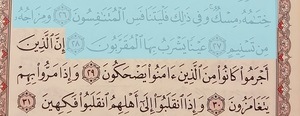 خِتَٰمُهُۥ مِسْكٌ وَفِى ذَٰلِكَ فَلْيَتَنَافَسِ ٱلْمُتَنَٰفِسُونَ ٢٦ وَمِزَاجُهُۥ
مِن تَسْنِيمٍ ٢٧ عَيْنًا يَشْرَبُ بِهَا ٱلْمُقَرَّبُونَ ٢٨ إِنَّ ٱلَّذِينَ
أَجْرَمُوا۟ كَانُوا۟ مِنَ ٱلَّذِينَ ءَامَنُوا۟ يَضْحَكُونَ ٢٩ وَإِذَا مَرُّوا۟ بِهِمْ
يَتَغَامَزُونَ ٣٠ وَإِذَا ٱنقَلَبُوٓا۟ إِلَىٰٓ أَهْلِهِمُ ٱنقَلَبُوا۟ فَكِهِينَ ٣١